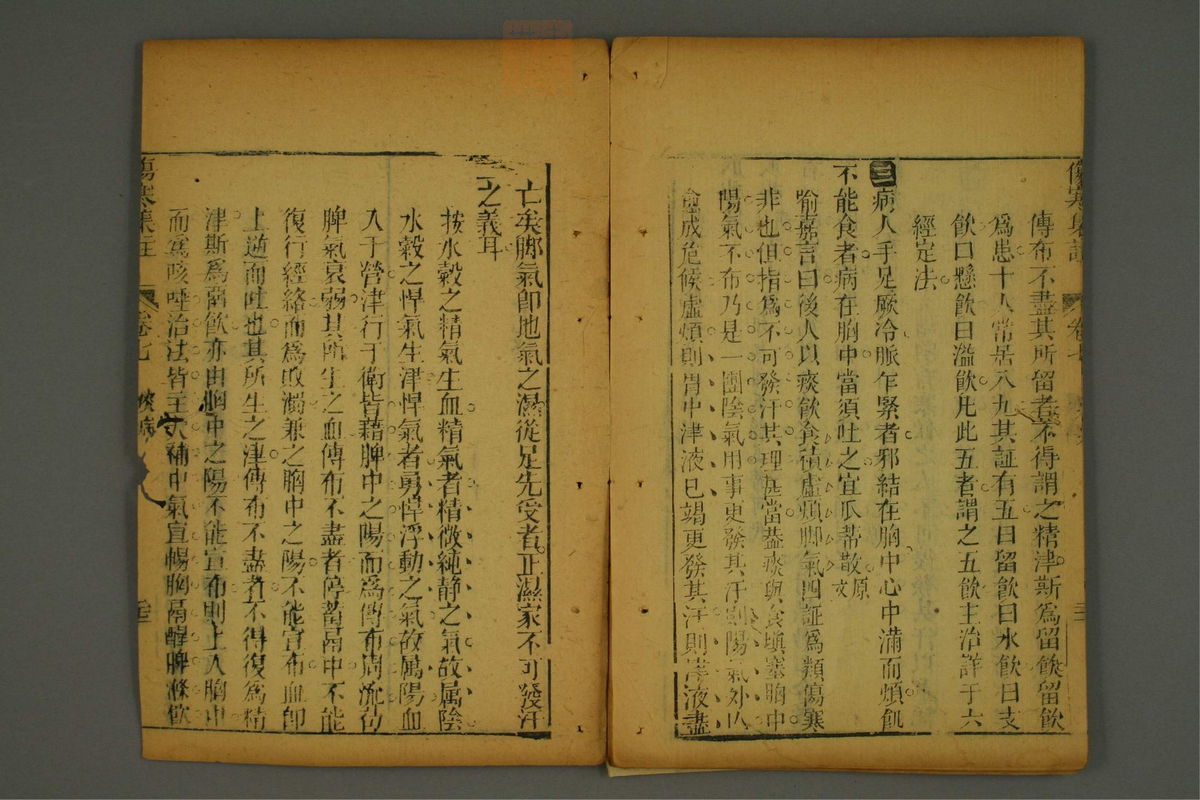 傳布不盡其所留者不得謂之精津斯爲留飲留飲
爲患十人常居八九其証有五曰留飲曰水飲曰支
飲曰懸飲曰溢飲凡此五者謂之五飲主治詳于六
經定法
三病人手足厥冷脈乍緊者邪結在胸中心中滿而煩飢
不能食者病在胸中當須吐之宜瓜蒂散原文
喻嘉言曰後人以痰飲食積虛煩脚氣四証爲類傷寒
非也但指爲不可發汗其理甚當蓋痰與食塡塞胸中
陽氣不布乃是一團陰氣用事更發其汗則陽氣外亡
愈成危候虛煩則胃中津液已竭更發其汗則津液盡
亡矣脚氣卽地氣之濕從足先受者正濕家不可發汗
之義耳
按水穀之精氣生血精氣者精微純静之氣故属陰
水穀之悍氣生津悍氣者勇悍浮動之氣故属陽血
入于營津行于衛皆藉脾中之陽而爲傳布周流若
脾氣衰弱其所生之血傳布不盡者停蓄鬲中不能
復行經絡而爲敗濁兼之胸中之陽不能宣布血卽
上逆而吐也其所生之津傳布不盡者不得復爲精
津斯爲留飲亦由胸中之陽不能宣布則上入胸中
而爲咳唾治法皆主大補中氣宣暢胸鬲醒脾滌飲
傷寒集註
卷七
痰病